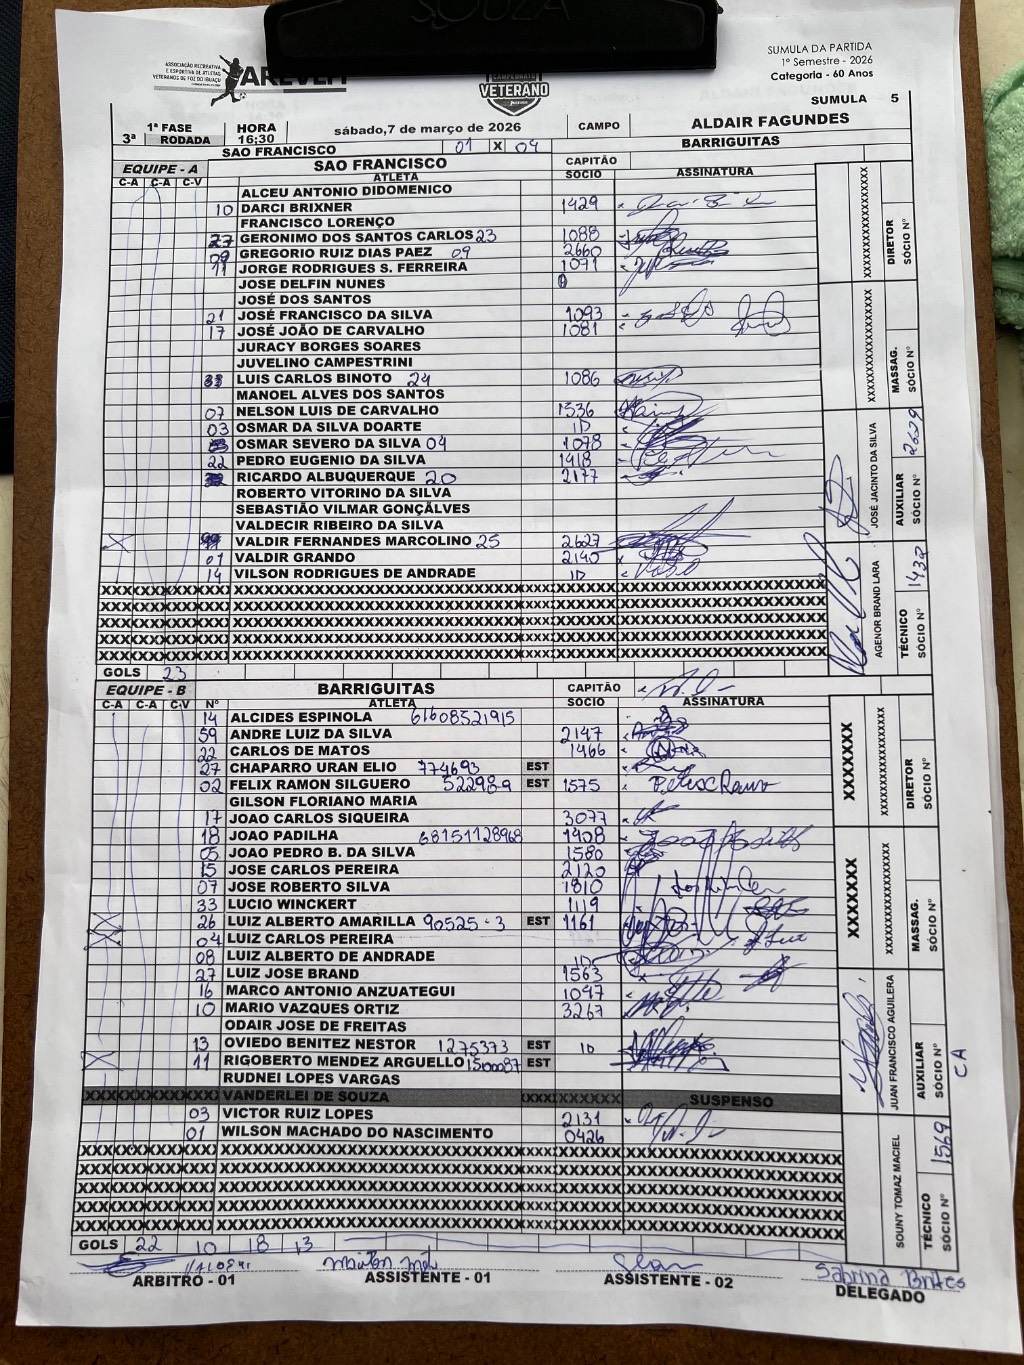 SOUZA
ASSOCIAÇÃO RECREATIVA
E ESPORTIVA DE ATLETAS
VETERANOS DE FOZ DO IGUAÇU
AREVEFI
CAMPEONATO
VETERANO
SUMULA DA PARTIDA
1º Semestre - 2026
Categoria - 60 Anos
SUMULA 5
3ª 1ª FASE RODADA HORA 16;30 sábado,7 de março de 2026 CAMPO ALDAIR FAGUNDES
SAO FRANCISCO 01 X 04 BARRIGUITAS
EQUIPE - A SAO FRANCISCO CAPITÃO
C-A C-A C-V ATLETA SÓCIO ASSINATURA
ALCEU ANTONIO DIDOMENICO
10 DARCI BRIXNER 1429
FRANCISCO LORENÇO
GERONIMO DOS SANTOS CARLOS 23 1088
09 GREGORIO RUIZ DIAS PAEZ 09 2660
11 JORGE RODRIGUES S. FERREIRA 1071
JOSE DELFIN NUNES
JOSÉ DOS SANTOS
21 JOSÉ FRANCISCO DA SILVA 1093
17 JOSÉ JOÃO DE CARVALHO 1081
JURACY BORGES SOARES
JUVELINO CAMPESTRINI
LUIS CARLOS BINOTO 24 1086
MANOEL ALVES DOS SANTOS
07 NELSON LUIS DE CARVALHO 1536
03 OSMAR DA SILVA DOARTE ID
OSMAR SEVERO DA SILVA 04 1078
22 PEDRO EUGENIO DA SILVA 1418
RICARDO ALBUQUERQUE 20 2177
ROBERTO VITORINO DA SILVA
SEBASTIÃO VILMAR GONÇALVES
VALDECIR RIBEIRO DA SILVA
X VALDIR FERNANDES MARCOLINO 25 2627
01 VALDIR GRANDO 2140
14 VILSON RODRIGUES DE ANDRADE ID
GOLS 23
DIRETOR SÓCIO Nº
MASSAG. SÓCIO Nº
JOSÉ JACINTO DA SILVA AUXILIAR SÓCIO Nº 2609
AGENOR BRAND LARA TÉCNICO SÓCIO Nº 1432
EQUIPE - B BARRIGUITAS CAPITÃO
C-A C-A C-V Nº ATLETA SÓCIO ASSINATURA
14 ALCIDES ESPINOLA 61608521915
59 ANDRE LUIZ DA SILVA 2147
22 CARLOS DE MATOS 1466
27 CHAPARRO URAN ELIO 774693 EST
02 FELIX RAMON SILGUERO 522989 EST 1575 Felix Ramon
GILSON FLORIANO MARIA
17 JOAO CARLOS SIQUEIRA 3077
18 JOAO PADILHA 68151128968 1908
05 JOAO PEDRO B. DA SILVA 1580
15 JOSE CARLOS PEREIRA 2120
07 JOSE ROBERTO SILVA 1810
33 LUCIO WINCKERT 1119
X 26 LUIZ ALBERTO AMARILLA 90525-3 EST 1161
X 04 LUIZ CARLOS PEREIRA
08 LUIZ ALBERTO DE ANDRADE ID
27 LUIZ JOSE BRAND 1563
16 MARCO ANTONIO ANZUATEGUI 1097
10 MARIO VAZQUES ORTIZ 3267
ODAIR JOSE DE FREITAS
13 OVIEDO BENITEZ NESTOR 1275373 EST ID
X 11 RIGOBERTO MENDEZ ARGUELLO 1500087 EST
RUDNEI LOPES VARGAS
XXXXXXXXXXXXX VANDERLEI DE SOUZA XXXXXXXXXX SUSPENSO
03 VICTOR RUIZ LOPES 2131
01 WILSON MACHADO DO NASCIMENTO 0426
GOLS 22 10 18 13
DIRETOR SÓCIO Nº
MASSAG. SÓCIO Nº
JUAN FRANCISCO AGUILERA AUXILIAR SÓCIO Nº CA
SOUNY TOMAZ MACIEL TÉCNICO SÓCIO Nº 1569
Sabrina Brites
ARBITRO - 01 ASSISTENTE - 01 ASSISTENTE - 02 DELEGADO